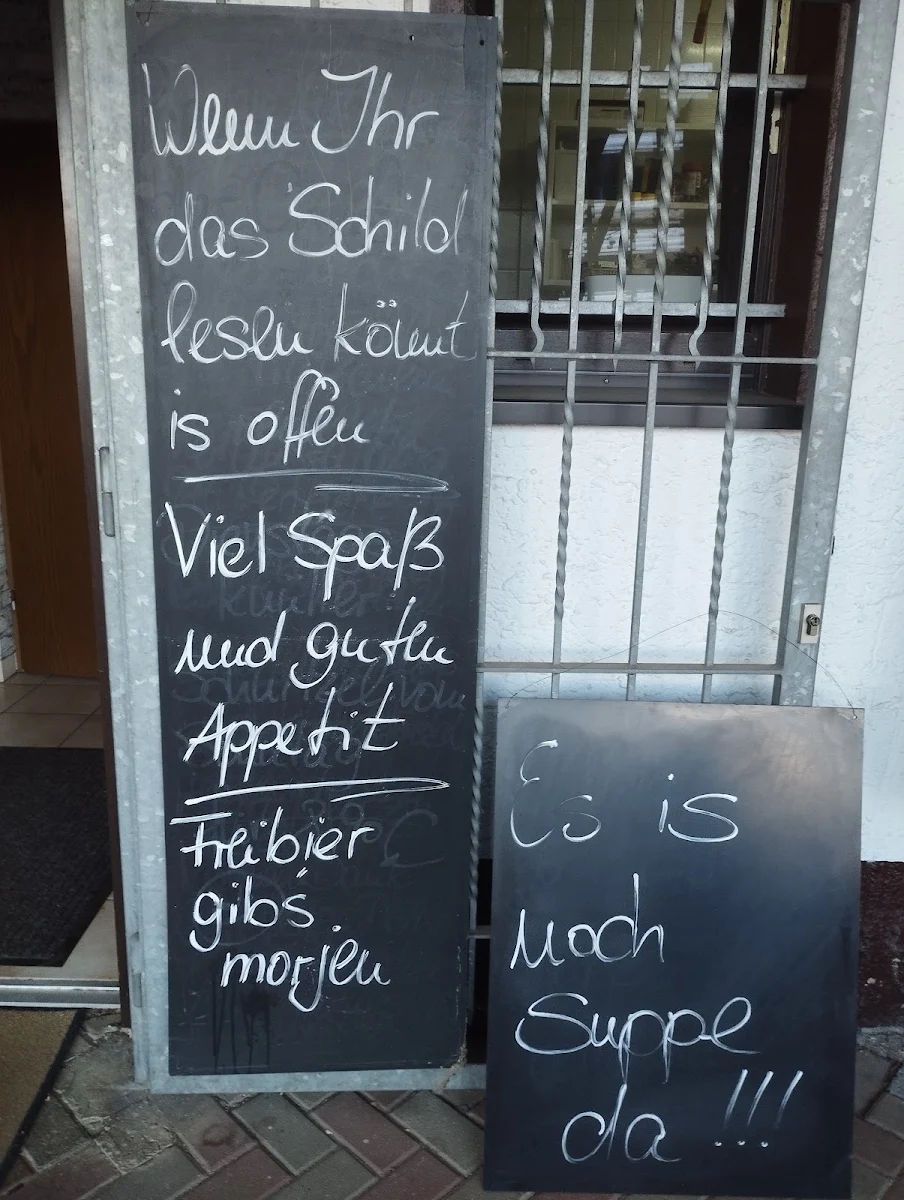 Wenn Ihr
das Schild
lesen könnt
is offen
Viel Spaß
und guten
Appetit
Freibier
gibs
morjen
Es is
noch
Suppe
da !!!